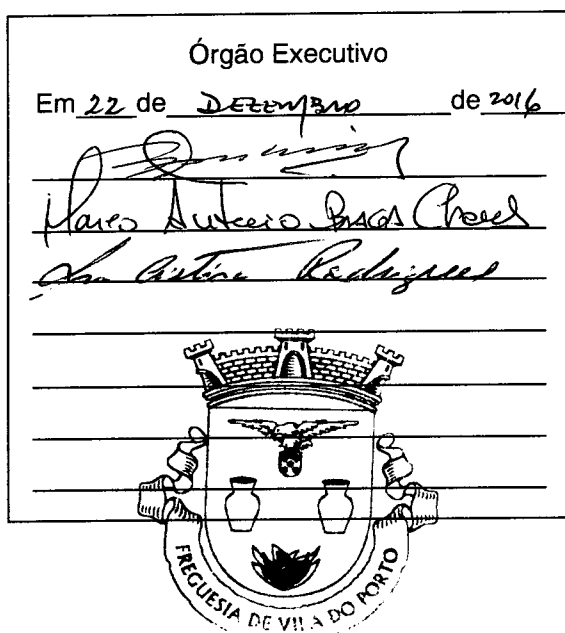 Órgão Executivo
Em 22 de DEZEMBRO de 2016
Marco António Braga Chaves
Ana Cristina Rodrigues
FREGUESIA DE VILA DO PORTO